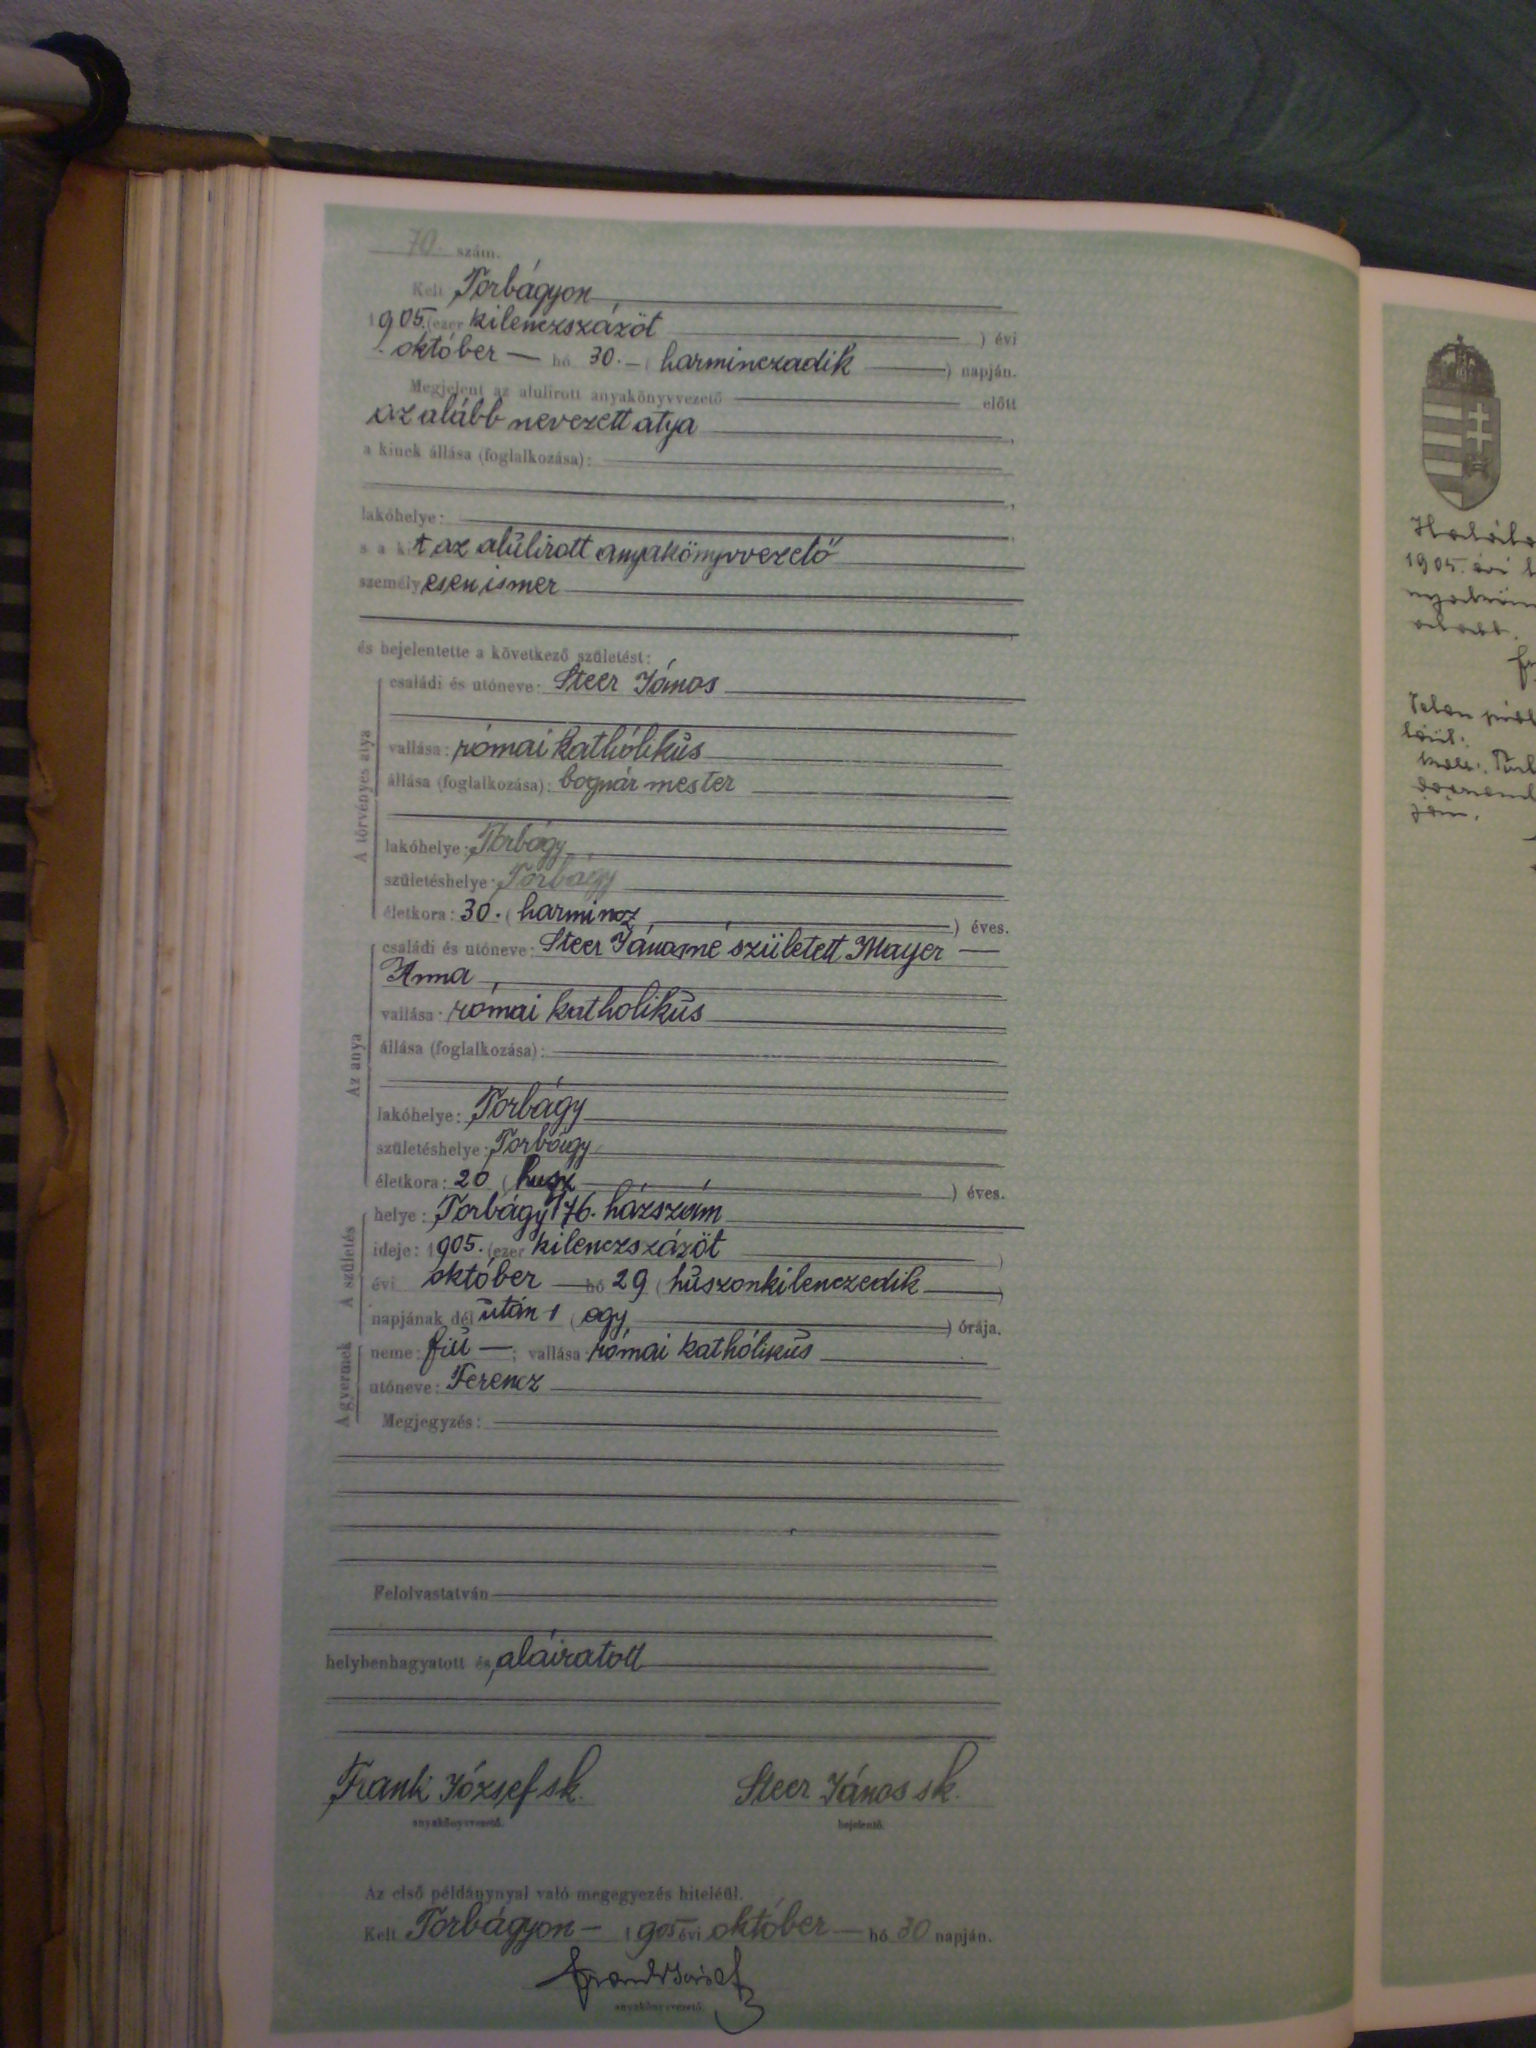 70 szám.
Kelt Torbágyon
1905. (ezer kilenczszázöt ) évi
október — hó 30. — ( harminczadik ) napján.
Megjelent az alulirott anyakönyvvezető előtt
az alább nevezett atya
a kinek állása (foglalkozása):
lakóhelye:
s a kit az alulirott anyakönyvvezető
személyesen ismer
és bejelentette a következő születést:
A törvényes atya
családi és utóneve: Steer János
vallása: római kathólikus
állása (foglalkozása): bognár mester
lakóhelye: Torbágy
születéshelye: Torbágy
életkora: 30. ( harmincz ) éves.
Az anya
családi és utóneve: Steer Jánosné született Mayer —
Anna
vallása: római katholikus
állása (foglalkozása):
lakóhelye: Torbágy
születéshelye: Torbágy
életkora: 20 ( husz ) éves.
A születés
helye: Torbágy 176. házszám
ideje: 1905. (ezer kilenczszázöt )
évi október — hó 29 ( huszonkilenczedik )
napjának dél után 1 ( egy ) órája.
A gyermek
neme: fiu — ; vallása: római kathólikus
utóneve: Ferencz
Megjegyzés:
Felolvastatván
helybenhagyatott és aláiratott
Frank József sk. Steer János sk.
anyakönyvvezető. bejelentő.
Az első példánynyal való megegyezés hiteléül.
Kelt Torbágyon — 1905 évi október — hó 30 napján.
Frank József
anyakönyvvezető.
1905. évi